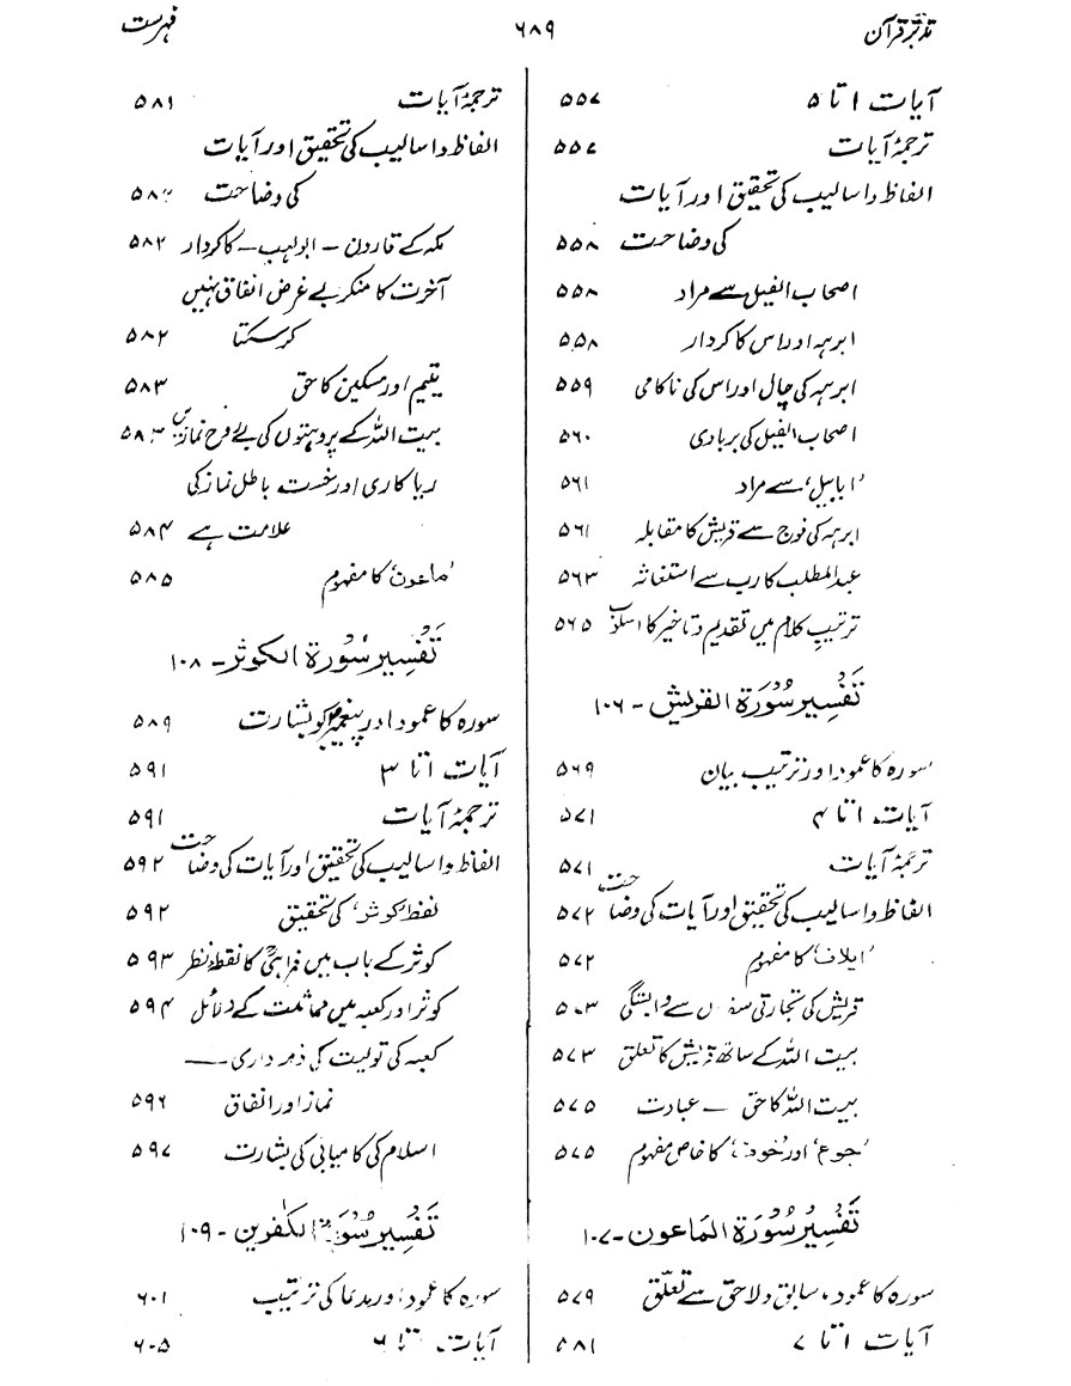 تدبر قرآن
۶۸۹
فہرست
آیات ۱ تا ۵ ۵۵۷
ترجمۂ آیات ۵۵۷
الفاظ و اسالیب کی تحقیق اور آیات
کی وضاحت ۵۵۸
اصحاب الفیل سے مراد ۵۵۸
ابرہہ اور اس کا کردار ۵۵۸
ابرہہ کی چال اور اس کی ناکامی ۵۵۹
اصحاب الفیل کی بربادی ۵۶۰
'ابابیل' سے مراد ۵۶۱
ابرہہ کی فوج سے قریش کا مقابلہ ۵۶۱
عبدالمطلب کا رب سے استغاثہ ۵۶۳
ترتیبِ کلام میں تقدیم و تاخیر کا اسلوب ۵۶۵
تفسیر سورۃ القریش - ۱۰۶
سورہ کا عمود اور ترتیب بیان ۵۶۹
آیات ۱ تا ۴ ۵۷۱
ترجمۂ آیات ۵۷۱
الفاظ و اسالیب کی تحقیق اور آیات کی وضاحت ۵۷۲
'ایلاف' کا مفہوم ۵۷۲
قریش کی تجارتی سفروں سے وابستگی ۵۷۳
بیت اللہ کے ساتھ قریش کا تعلق ۵۷۳
بیت اللہ کا حق — عبادت ۵۷۵
'جوع' اور 'خوف' کا خاص مفہوم ۵۷۵
تفسیر سورۃ الماعون - ۱۰۷
سورہ کا عمود، سابق و لاحق سے تعلق ۵۷۹
آیات ۱ تا ۷ ۵۸۱
ترجمۂ آیات ۵۸۱
الفاظ و اسالیب کی تحقیق اور آیات
کی وضاحت ۵۸۲
مکہ کے قارون - ابولہب - کا کردار ۵۸۲
آخرت کا منکر بے غرض انفاق نہیں
کر سکتا ۵۸۲
یتیم اور مسکین کا حق ۵۸۳
بیت اللہ کے پروہتوں کی بے روح نمازیں ۵۸۳
ریاکاری اور خست باطل نماز کی
علامت ہے ۵۸۴
'ماعون' کا مفہوم ۵۸۵
تفسیر سورۃ الکوثر - ۱۰۸
سورہ کا عمود اور پیغمبرؐ کو بشارت ۵۸۹
آیات ۱ تا ۳ ۵۹۱
ترجمۂ آیات ۵۹۱
الفاظ و اسالیب کی تحقیق اور آیات کی وضاحت ۵۹۲
لفظ 'کوثر' کی تحقیق ۵۹۲
کوثر کے باب میں فراہیؒ کا نقطۂ نظر ۵۹۳
کوثر اور کعبہ میں مماثلت کے دلائل ۵۹۴
کعبہ کی تولیت کی ذمہ داری —
نماز اور انفاق ۵۹۶
اسلام کی کامیابی کی بشارت ۵۹۷
تفسیر سورۃ الکٰفرین - ۱۰۹
سورہ کا عمود اور مدعا کی ترتیب ۶۰۱
آیات ۱ تا ۶ ۶۰۵